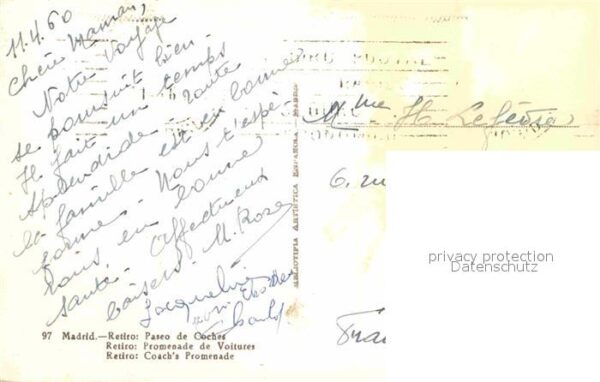 11.4.60
Chère Maman,
Notre Voyage
se poursuit bien.
Il fait un temps
splendide. Toute
la famille est en bonne
forme. Nous t'espé-
rons en bonne
santé. Affectueux
baisers. M. Rose
Jacqueline
97 Madrid.—Retiro: Paseo de Coches
Retiro: Promenade de Voitures
Retiro: Coach's Promenade
HELIOTIPIA ARTISTICA ESPAÑOLA - MADRID
Mme H. Lefèvre
6. ru
privacy protection
Datenschutz
Fran